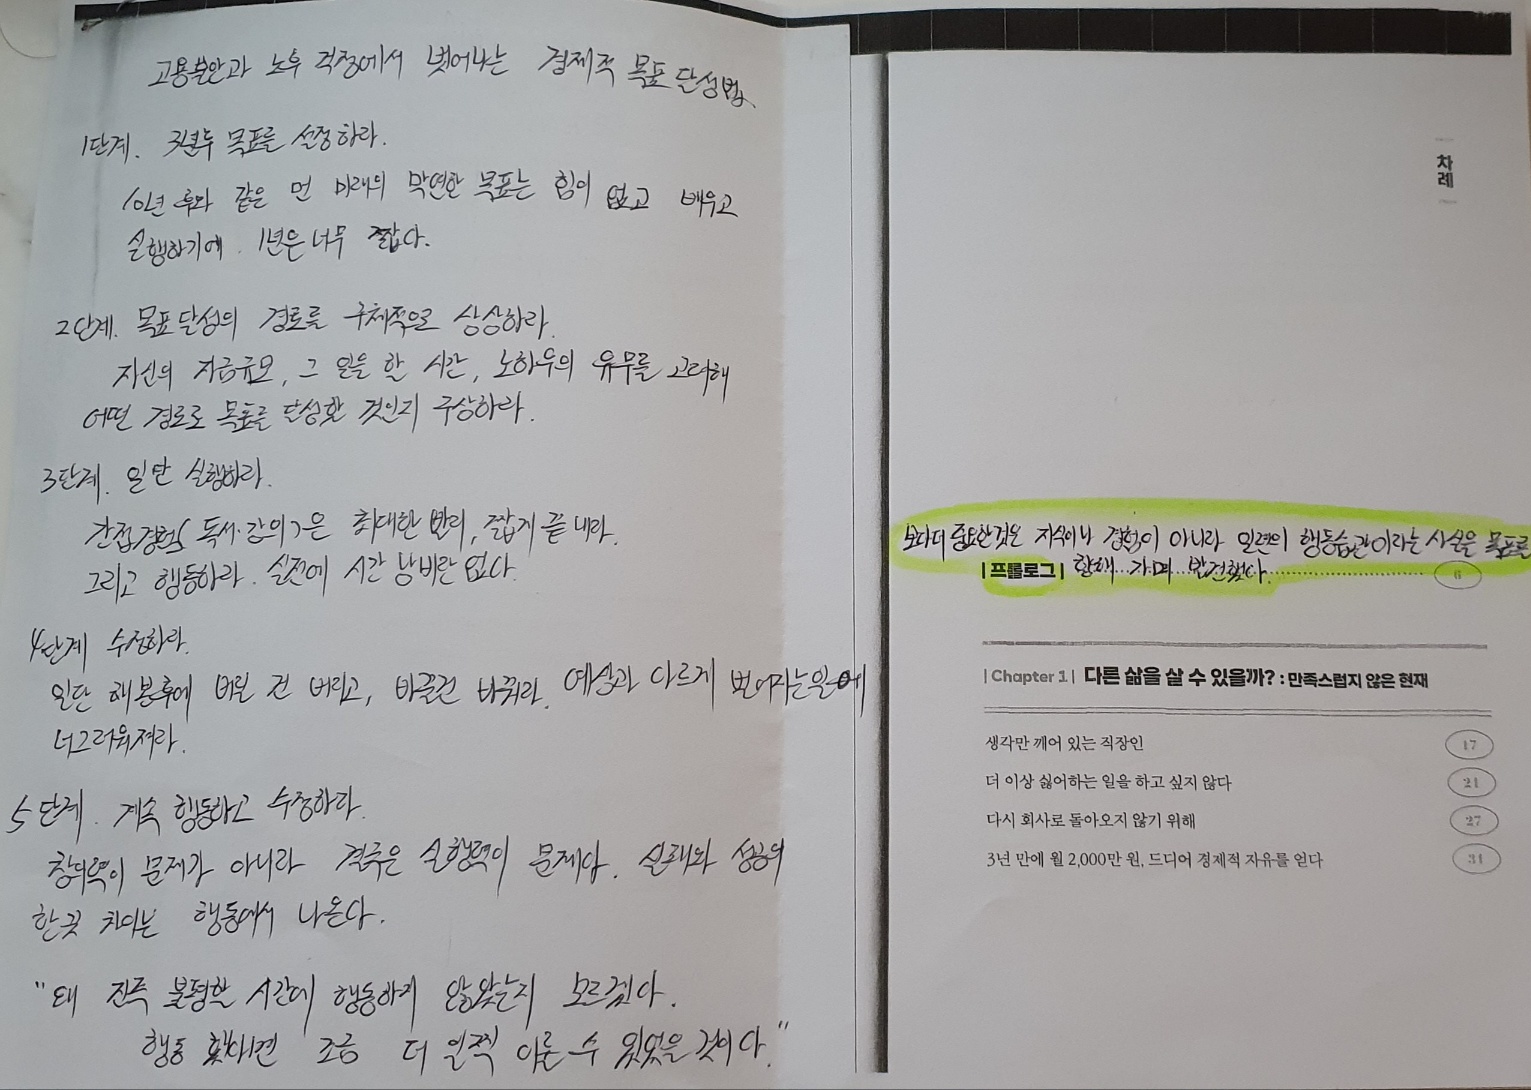 고용불안과 노후 걱정에서 벗어나는 경제적 목표 달성법.
1단계. 3년후 목표를 설정하라.
10년 후와 같은 먼 미래의 막연한 목표는 힘이 없고 배우고
실행하기에 1년은 너무 짧다.
2단계. 목표달성의 경로를 구체적으로 상상하라.
자신의 자금규모, 그 일을 할 시간, 노하우의 유무를 고려해
어떤 경로로 목표를 달성할 것인지 구상하라.
3단계. 일단 실행하라.
간접경험(독서·강의)은 최대한 빨리, 짧게 끝내라.
그리고 행동하라. 실전에 시간 낭비란 없다.
4단계 수정하라.
일단 해봉후에 버릴 건 버리고, 바꿀건 바꿔라. 예상과 다르게 벌어지는일에
너그러워져라.
5단계. 계속 행동하고 수정하라.
창의력이 문제가 아니라 결국은 실행력이 문제다. 실패와 성공의
한끗 차이는 행동에서 나온다.
"왜 진즉 불평할 시간에 행동하지 않았는지 모르겠다.
행동 했다면 조금 더 일찍 이룰 수 있었을 것이다."
차례
보다 더 중요한것은 지식이나 경험이 아니라 일련의 행동습관이라는 사실을 목표를
향해 가며 발견했다.
|프롤로그| 6
|Chapter 1| 다른 삶을 살 수 있을까? : 만족스럽지 않은 현재
생각만 깨어 있는 직장인 17
더 이상 싫어하는 일을 하고 싶지 않다 21
다시 회사로 돌아오지 않기 위해 27
3년 만에 월 2,000만 원, 드디어 경제적 자유를 얻다 31